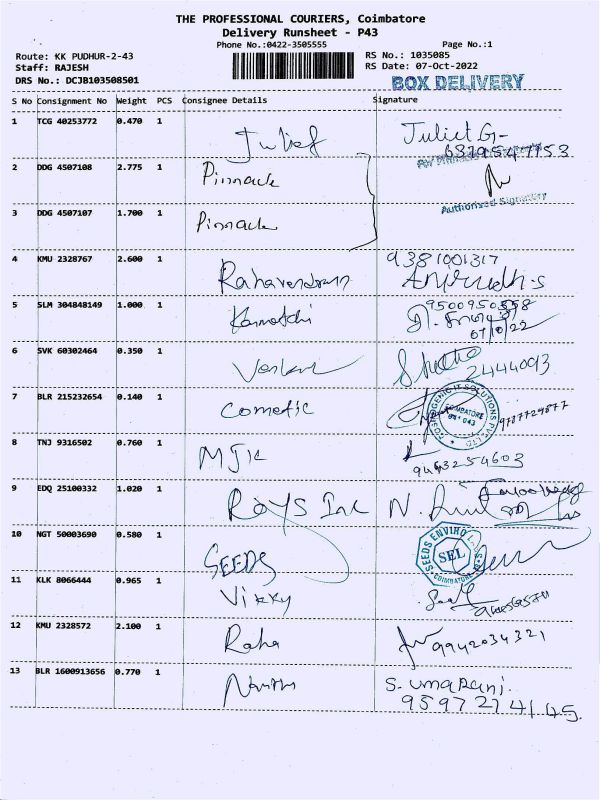 THE PROFESSIONAL COURIERS, Coimbatore
Delivery Runsheet - P43
Phone No.:0422-3505555 Page No.:1
Route: KK PUDHUR-2-43 RS No.: 1035085
Staff: RAJESH RS Date: 07-Oct-2022
DRS No.: DCJB103508501 BOX DELIVERY
S No Consignment No Weight PCS Consignee Details Signature
1 TCG 40253772 0.470 1 Juliet Juliet G-
2 DDG 4507108 2.775 1 Pinnacle
Authorised Signatory
3 DDG 4507107 1.700 1 Pinnacle
4 KMU 2328767 2.600 1 Rahavendran 9381001317
Anirudh.S
5 SLM 304848149 1.000 1 Kamatchi 9500950558
07/10/22
6 SVK 60302464 0.350 1 2444093
7 BLR 215232654 0.140 1 Cometic COIMBATORE 9787724877
8 TNJ 9316502 0.760 1 MJK
9463254603
9 EDQ 25100332 1.020 1 ROYS Inc N.
10 NGT 50003690 0.580 1 SEEDS SEEDS ENVIRO SEL COIMBATORE
11 KLK 8066444 0.965 1 Vikky
12 KMU 2328572 2.100 1 Raha 9942034321
13 BLR 1600913656 0.770 1 S. UMARANI.
9597274145.